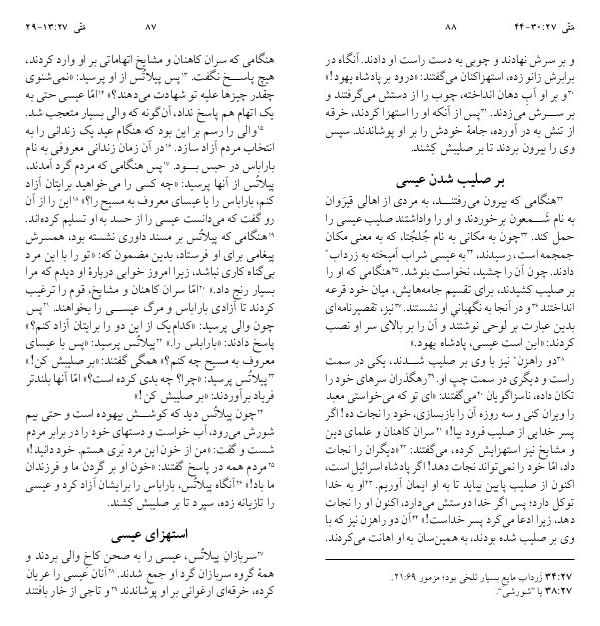 مَتّی ۱۳:۲۷-۲۹
۸۷
هنگامی که سران کاهنان و مشایخ اتهاماتی بر او وارد کردند،
هیچ پاسـخ نگفت. ۱۳پس پیلاتُس از او پرسید: «نمی‌شنوی
چقدر چیزها علیه تو شهادت می‌دهند؟» ۱۴امّا عیسی حتی به
یک اتهام هم پاسخ نداد، آن‌گونه که والی بسیار متعجب شد.
۱۵والی را رسم بر این بود که هنگام عید یک زندانی را به
انتخاب مردم آزاد سازد. ۱۶در آن زمان زندانی معروفی به نام
باراباس در حبس بـود. ۱۷پس هنگامی که مردم گرد آمدند،
پیلاتُس از آنها پرسید: «چه کسی را می‌خواهید برایتان آزاد
کنم، باراباس را یا عیسای معروف به مسیح را؟» ۱۸این را از آن
رو گفت که می‌دانست عیسی را از حسد به او تسلیم کرده‌اند.
۱۹هنگامی که پیلاتُس بر مسند داوری نشسته بود، همسرش
پیغامی برای او فرستاد، بدین مضمون که: «تو را با این مرد
بی‌گناه کاری نباشد، زیرا امروز خوابی دربارهٔ او دیدم که مرا
بسیار رنج داد.» ۲۰امّا سران کاهنان و مشایخ، قوم را ترغیب
کردند تا آزادی باراباس و مرگ عیســی را بخواهند. ۲۱پس
چون والی پرسید: «کدام‌یک از این دو را برایتان آزاد کنم؟»
پاسخ دادند: «باراباس را.» ۲۲پیلاتُس پرسید: «پس با عیسای
معروف به مسیح چه کنم؟» همگی گفتند: «بر صلیبش کن!»
۲۳پیلاتُس پرسید: «چرا؟ چه بدی کرده است؟» امّا آنها بلندتر
فریاد برآوردند: «بر صلیبش کن!»
۲۴چون پیلاتُس دید که کوشـش بیهوده است و حتی بیم
شورش می‌رود، آب خواست و دستهای خود را در برابر مردم
شست و گفت: «من از خون این مرد بَری هستم. خود دانید!»
۲۵مردم همه در پاسخ گفتند: «خون او بر گردن ما و فرزندان
ما باد!» ۲۶آنگاه پیلاتُس، باراباس را برایشان آزاد کرد و عیسی
را تازیانه زده، سپرد تا بر صلیبش کِشند.
استهزای عیسی
۲۷سربازانِ پیلاتُس، عیسی را به صحن کاخ والی بردند و
همهٔ گروه سربازان گرد او جمع شدند. ۲۸آنان عیسی را عریان
کرده، خرقه‌ای ارغوانی بر او پوشاندند ۲۹و تاجی از خار بافتند
مَتّی ۳۰:۲۷-۴۴
۸۸
و بر سرش نهادند و چوبی به دست راست او دادند. آنگاه در
برابرش زانو زده، استهزاکنان می‌گفتند: «درود بر پادشاه یهود!»
۳۰و بر او آبِ دهان انداخته، چوب را از دستش می‌گرفتند و
بر ســرش می‌زدند. ۳۱پس از آنکه او را استهزا کردند، خرقه
از تنش به در آورده، جامهٔ خودش را بر او پوشاندند. سپس
وی را بیرون بردند تا بر صلیبش کِشند.
بر صلیب شدن عیسی
۳۲هنگامی که بیرون می‌رفتنــد، به مردی از اهالی قیرَوان
به نام شَــمعون برخوردند و او را واداشتند صلیب عیسی را
حمل کند. ۳۳چون به مکانی به نام جُلجُتا، که به معنی مکان
جمجمه است، رسیدند، ۳۴به عیسی شراب آمیخته به زرداب*
دادند. چون آن را چشید، نخواست بنوشد. ۳۵هنگامی که او را
بر صلیب کشیدند، برای تقسیم جامه‌هایش، میان خود قرعه
انداختند ۳۶و در آنجا به نگهبانی او نشستند. ۳۷نیز، تقصیرنامه‌ای
بدین عبارت بر لوحی نوشتند و آن را بر بالای سر او نصب
کردند: «این است عیسی، پادشاه یهود.»
۳۸دو راهزن* نیز با وی بر صلیب شــدند، یکی در سمت
راست و دیگری در سمت چپِ او. ۳۹رهگذران سرهای خود را
تکان داده، ناسزاگویان ۴۰می‌گفتند: «ای تو که می‌خواستی معبد
را ویران کنی و سه روزه آن را بازبسازی، خود را نجات ده! اگر
پسر خدایی از صلیب فرود بیا!» ۴۱سران کاهنان و علمای دین
و مشایخ نیز استهزایش کرده، می‌گفتند: ۴۲«دیگران را نجات
داد، امّا خود را نمی‌تواند نجات دهد! اگر پادشاه اسرائیل است،
اکنون از صلیب پایین بیاید تا به او ایمان آوریم. ۴۳او به خدا
توکل دارد؛ پس اگر خدا دوستش می‌دارد، اکنون او را نجات
دهد، زیرا ادعا می‌کرد پسر خداست!» ۴۴آن دو راهزن نیز که با
وی بر صلیب شده بودند، به همین‌سان به او اهانت می‌کردند.
۳۴:۲۷ زرداب مایع بسیار تلخی بود؛ مزمور ۲۱:۶۹.
۳۸:۲۷ یا "شورشی".